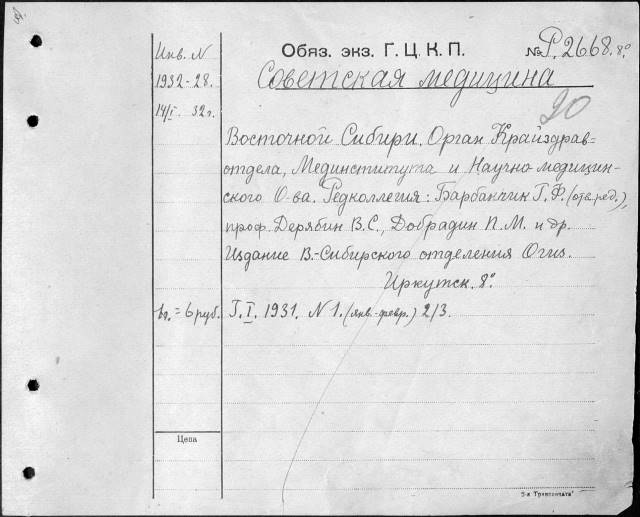 Обяз. экз. Г. Ц. К. П. № Р. 2668. 8º
Инв. N
1932-28.
14/I. 32г.
Советская медицина
20
Восточной Сибири. Орган Крайздрав=
отдела, Мединститута и Научно-медицин-
ского О-ва. Редколлегия: Барбанчик Г. Ф. (отв. ред.),
проф. Дерябин В. С., Добрадин П. М. и др.
Издание В.-Сибирского отделения Огиз.
Иркутск. 8º.
= 6 руб. Г. I. 1931. N 1. (янв.-февр.) 2/3.
Цена